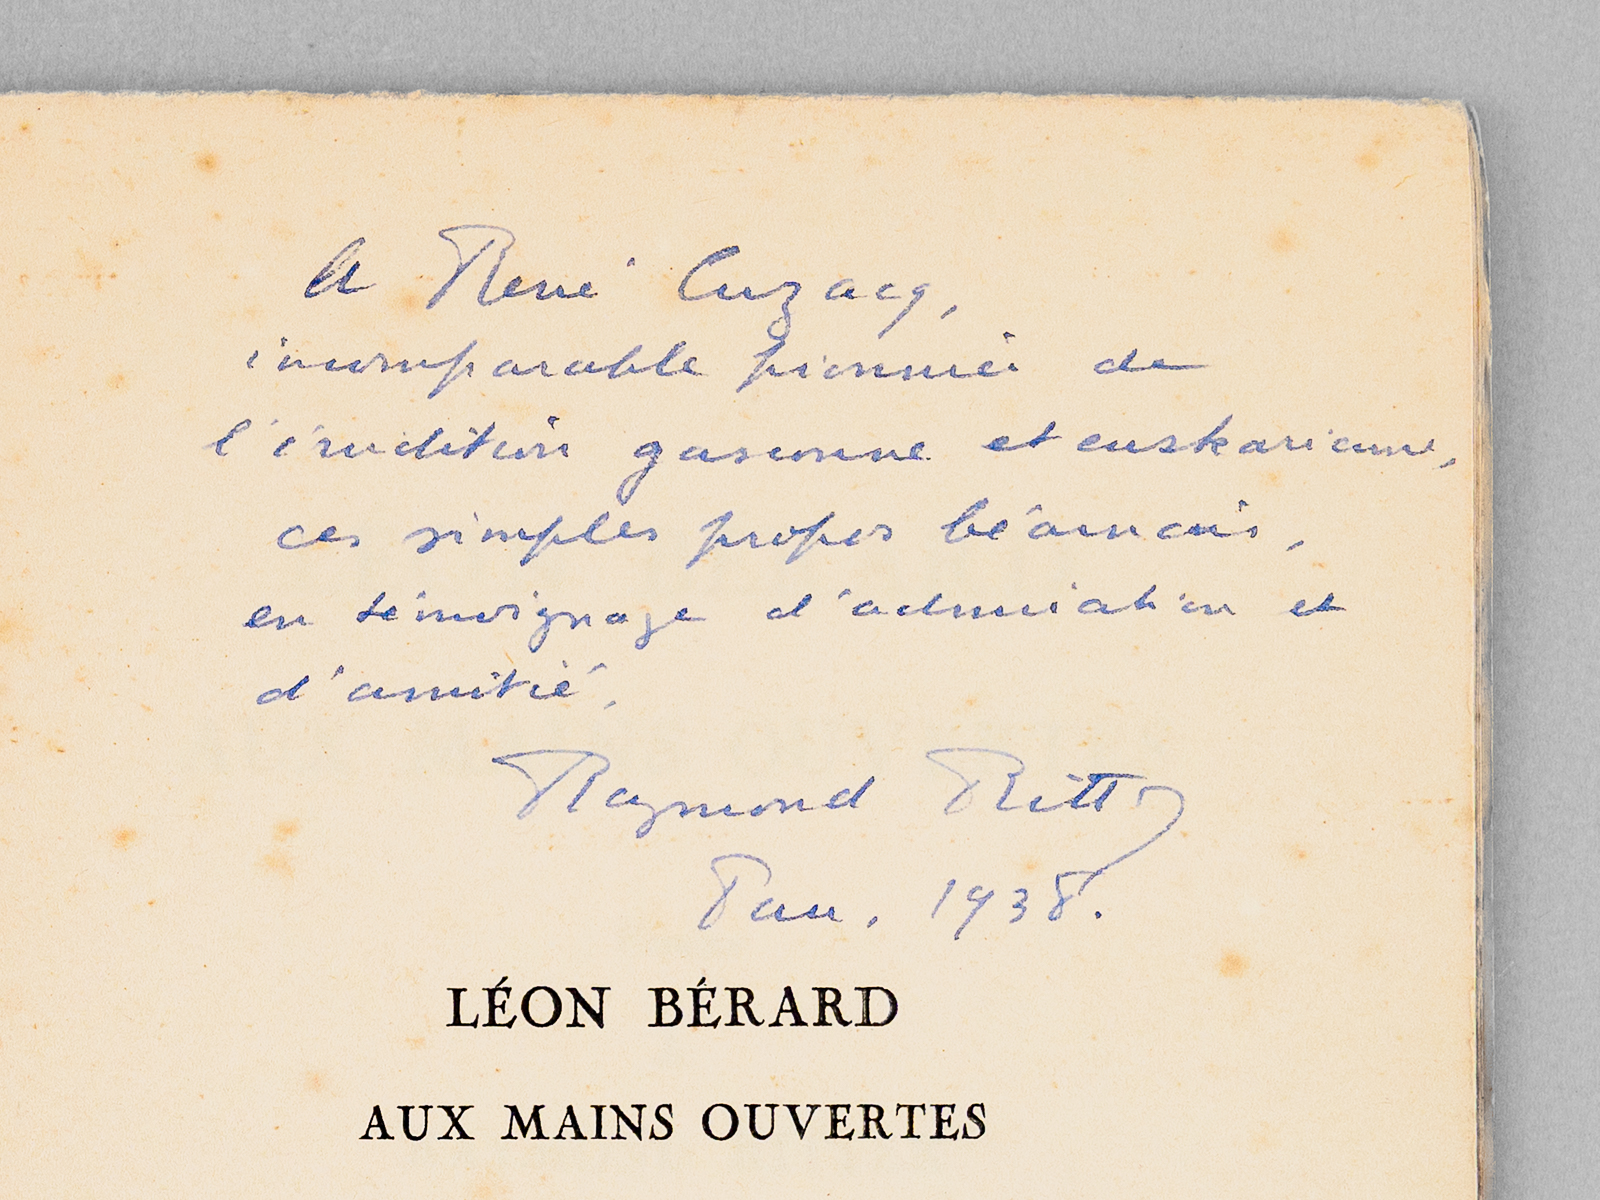 A René Cuzacq,
incomparable pionnier de
l'érudition gasconne et euskarienne,
ces simples propos béarnais,
en témoignage d'admiration et
d'amitié,
Raymond Ritter
Pau, 1938.
LÉON BÉRARD
AUX MAINS OUVERTES